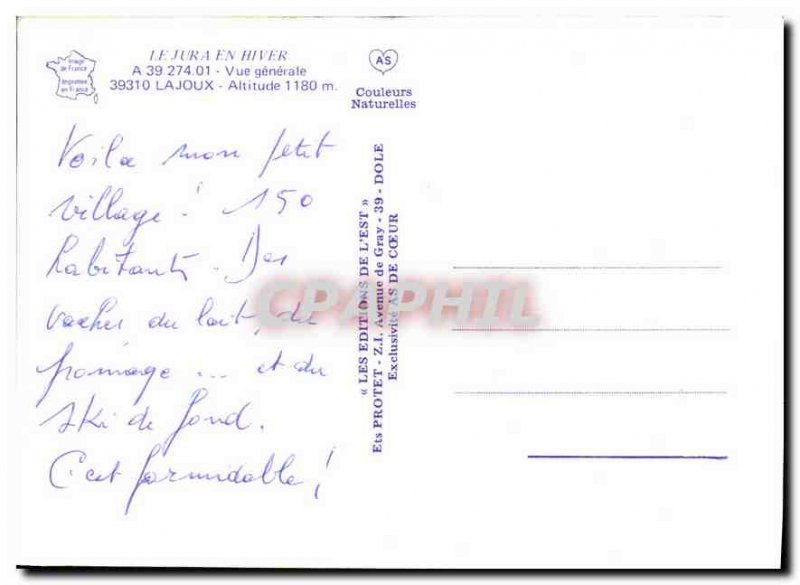 Image
de France
Imprimée
en France
LE JURA EN HIVER
A 39.274.01 - Vue générale
39310 LAJOUX - Altitude 1180 m.
AS
Couleurs
Naturelles
Voila mon petit
village ! 150
habitants. Des
vaches du lait, du
fromage ... et du
ski de fond.
C'est formidable !
« LES EDITIONS DE L'EST »
Ets PROTET - Z.I. Avenue de Gray - 39 - DOLE
Exclusivité AS DE CŒUR
CPAPHIL